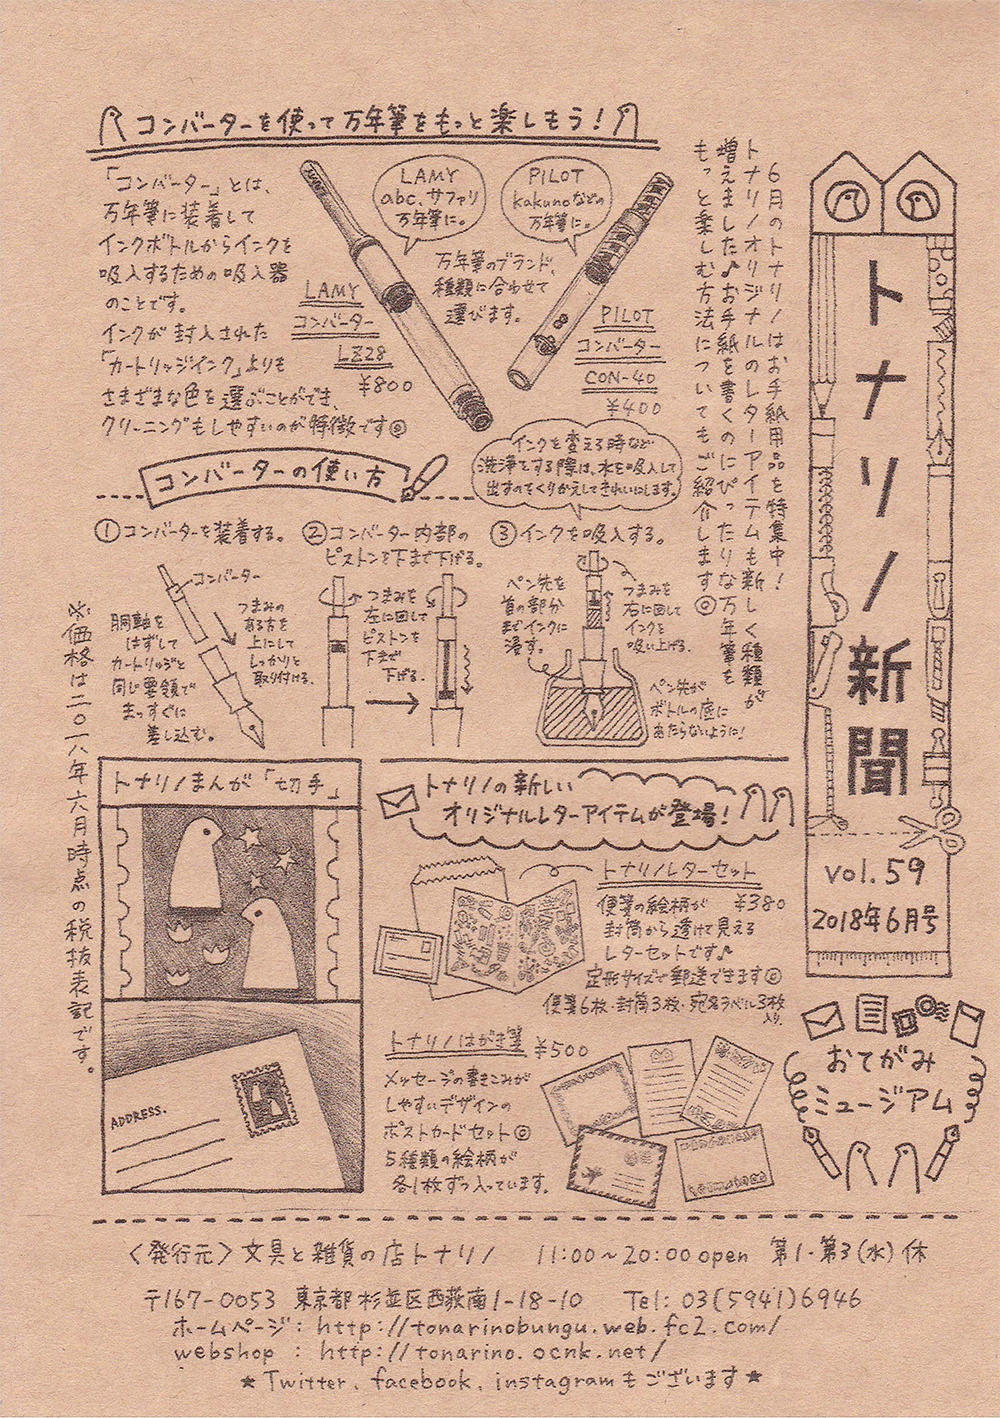 トナリノ新聞
vol.59
2018年6月号
おてがみ
ミュージアム
6月のトナリノはお手紙用品を特集中！
トナリノオリジナルのレターアイテムも新しく種類が
増えました♪お手紙を書くのにぴったりな万年筆を
もっと楽しむ方法についてもご紹介します◎
コンバーターを使って万年筆をもっと楽しもう！
「コンバーター」とは、
万年筆に装着して
インクボトルからインクを
吸入するための吸入器
のことです。
インクが封入された
「カートリッジインク」よりも
さまざまな色を選ぶことができ、
クリーニングもしやすいのが特徴です◎
LAMY
abc、サファリ
万年筆に。
PILOT
kakunoなどの
万年筆に。
万年筆のブランド、
種類に合わせて
選びます。
LAMY
コンバーター
LZ28
¥800
PILOT
コンバーター
CON-40
¥400
インクを変える時など
洗浄をする際は、水を吸入して
出すのをくりかえしてきれいにします。
コンバーターの使い方
①コンバーターを装着する。
コンバーター
胴軸を
はずして
カートリッジと
同じ要領で
まっすぐに
差し込む。
つまみの
ある方を
上にして
しっかりと
取り付ける。
②コンバーター内部の
ピストンを下まで下げる。
つまみを
左に回して
ピストンを
下まで
下げる。
③インクを吸入する。
ペン先を
首の部分
までインクに
浸す。
つまみを
右に回して
インクを
吸い上げる。
ペン先が
ボトルの底に
あたらないように！
※価格は二〇一八年六月時点の税抜表記です。
トナリノまんが「切手」
ADDRESS.
トナリノの新しい
オリジナルレターアイテムが登場！
トナリノレターセット
¥380
便箋の絵柄が
封筒から透けて見える
レターセットです♪
定形サイズで郵送できます◎
便箋6枚・封筒3枚・宛名ラベル3枚
入り。
トナリノはがき箋 ¥500
メッセージの書きこみが
しやすいデザインの
ポストカードセット◎
5種類の絵柄が
各1枚ずつ入っています。
〈発行元〉文具と雑貨の店トナリノ 11:00〜20:00 open 第1・第3(水)休
〒167-0053 東京都杉並区西荻南1-18-10 Tel: 03(5941)6946
ホームページ: http://tonarinobungu.web.fc2.com/
webshop : http://tonarino.ocnk.net/
★Twitter、facebook、instagramもございます★